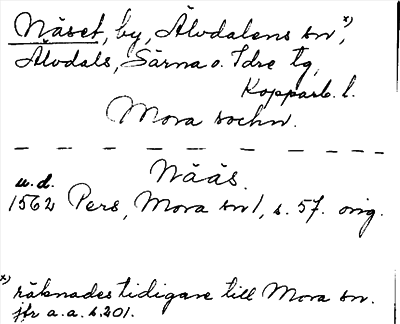 Näset, by, Älvdalens sn x),
Älvdals, Särna o. Idre tg,
Kopparb. l.
Mora sochn.
— — — — — — — — — — —
Nääs.
u.d.
1562 Pers, Mora sn 1, s. 57. orig.
x) räknades tidigare till Mora sn.
jfr a.a. s. 201.